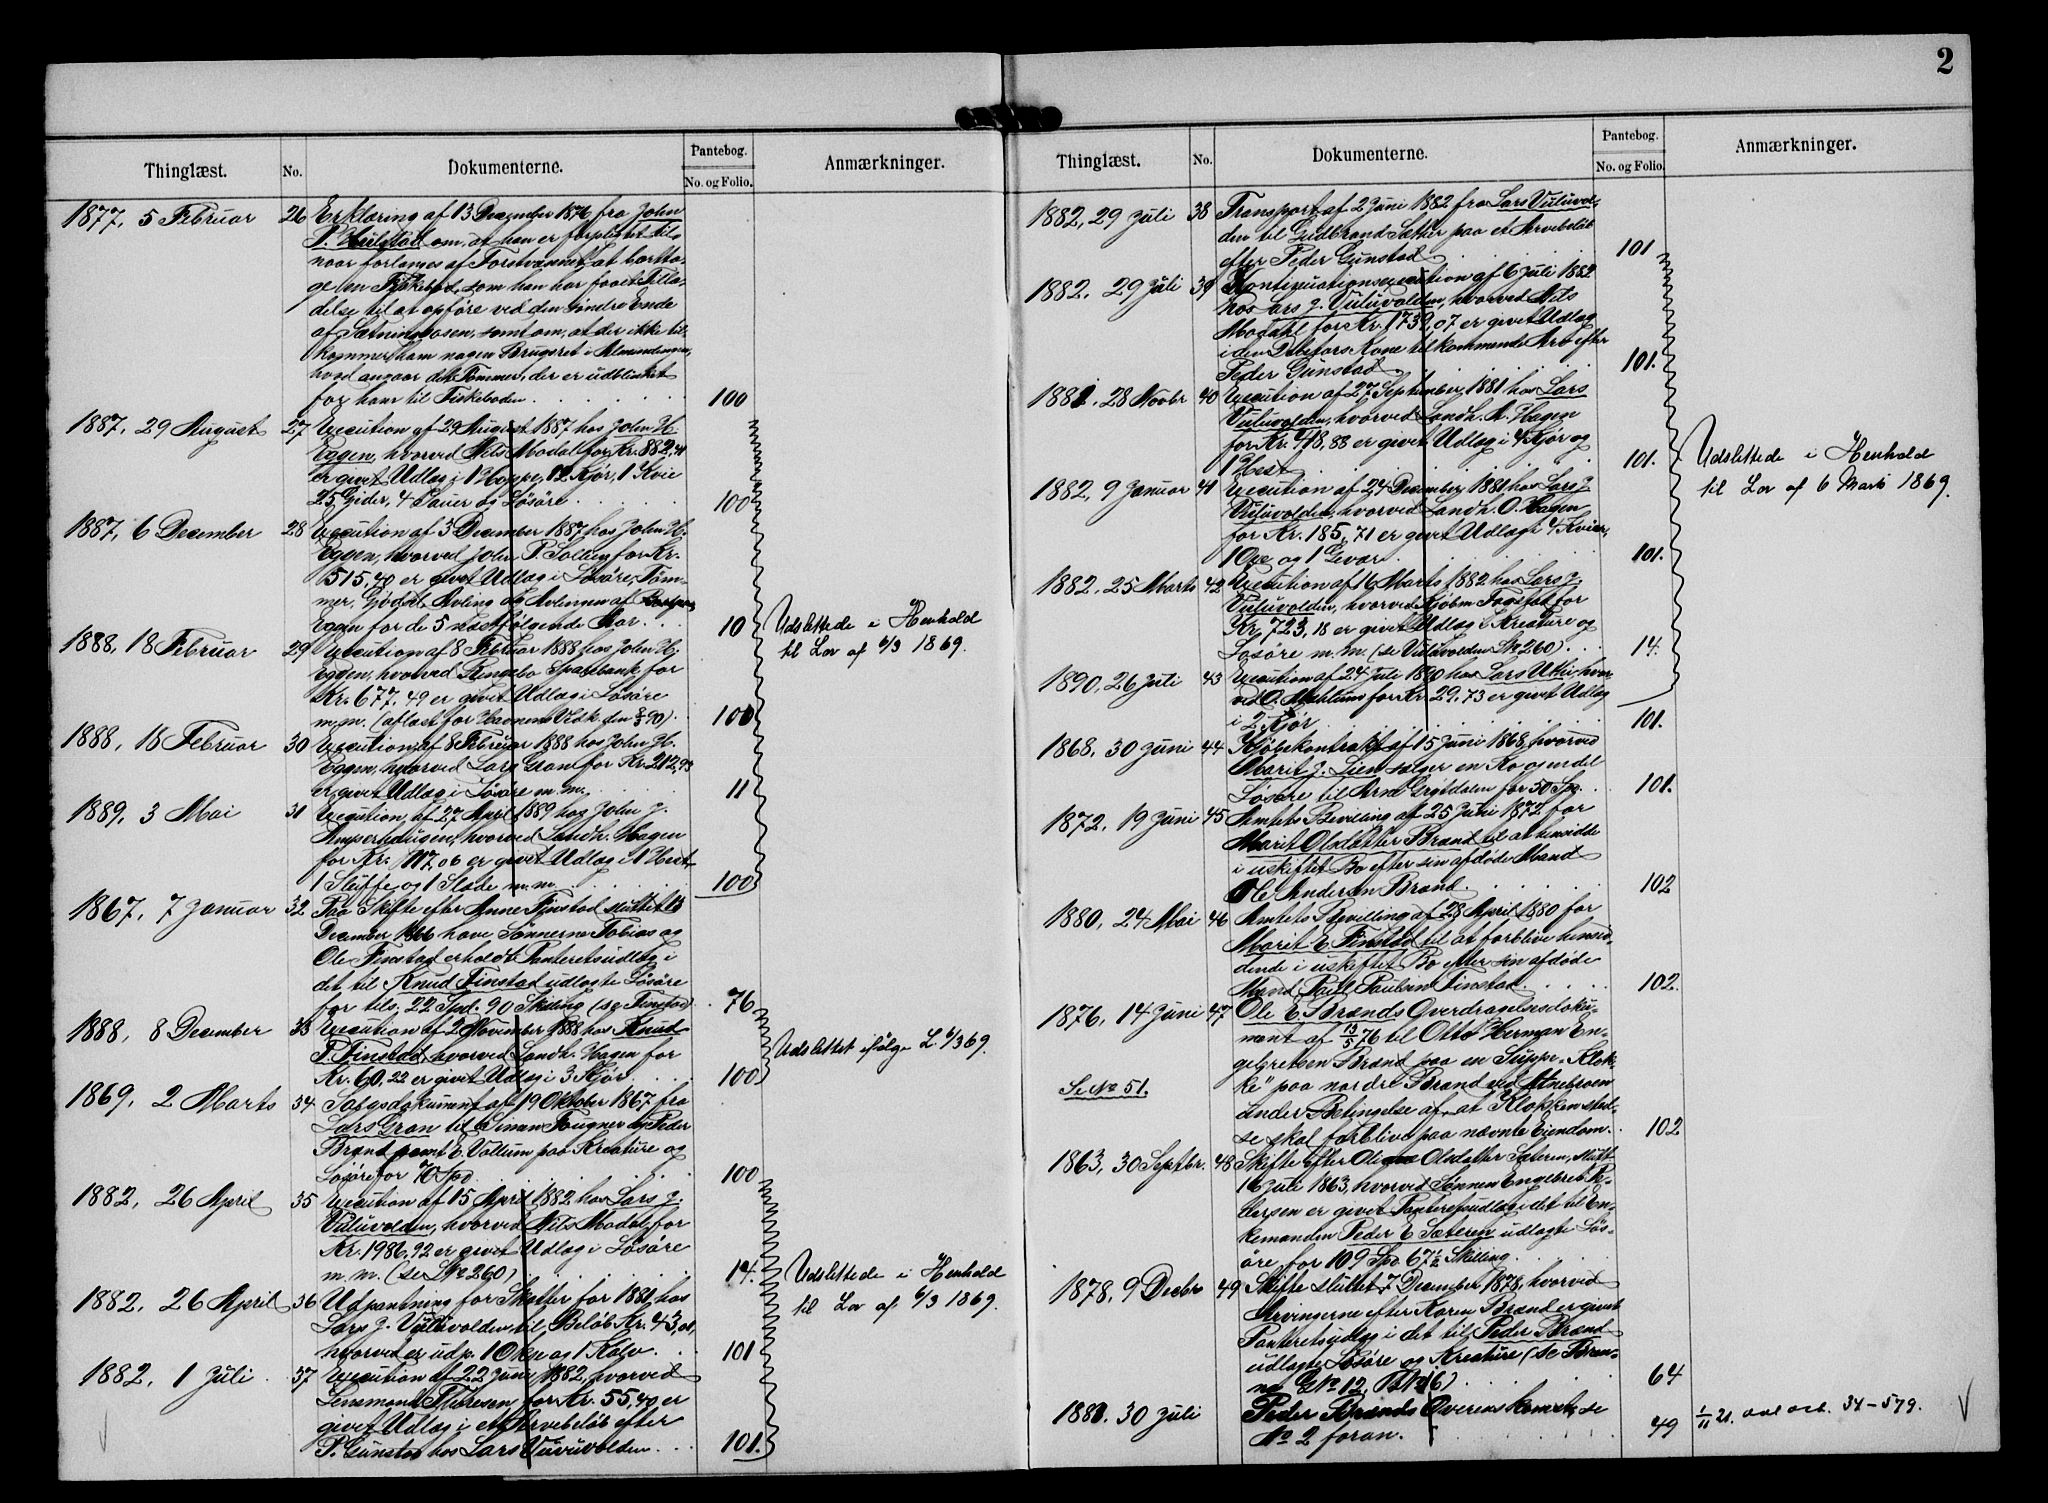 2
Thinglæst. No. Dokumenterne. Pantebog. No. og Folio. Anmærkninger.
1877, 5 Februar 26 Erklæring af 13 December 1876 fra John
P. om, at han er forpligtet til
naar forlanges af Forstvæsenet, at bortta-
ge en Fiskebod, som han har faaet Tilla-
delse til at opføre ved den søndre Ende
af samt om, at der ikke til-
kommer ham nogen Brugsret i Almindingen,
hvad angaar det Tømmer, der er udblinket
for ham til Fiskeboden. 100
1887, 29 August 27 Execution af 29 August 1887 hos John H.
Eggen, hvorved Nils Modal for Kr. 882,41
er givet Udlæg i 1 Hoppe, 12 Kjør, 1 Kvie
25 Gjeder, 4 Sauer og Løsøre 100
1887, 6 December 28 Execution af 3 December 1887 hos John H.
Eggen, hvorved John P. Solberg for Kr.
515,40 er givet Udlæg i Løsøre, Tøm-
mer, Gjødsel, Avling og Avlingen af
Eggen for de 5 næstfølgende Aar. 10
1888, 18 Februar 29 Execution af 8 Februar 1888 hos John H.
Eggen, hvorved Ringebo Sparebank for
Kr. 677,49 er givet Udlæg i Løsøre
m.m. (aflæst for Havnens Vedk. den 90). 100
Udslettede i Henhold
til Lov af 6/3 1869.
1888, 18 Februar 30 Execution af 8 Februar 1888 hos John H.
Eggen, hvorved Lars Gran for Kr. 212,93
er givet Udlæg i Løsøre m.m. 11
1889, 3 Mai 31 Execution af 27 April 1889 hos John J.
hvorved Landh. Hagen
for Kr. 117,06 er givet Udlæg i 1 Hest,
1 Sluffe og 1 Slæde m.m. 100
1867, 7 Januar 32 Paa Skifte efter Anne Finstad sluttet 13
December 1866 have Sønnerne Tobias og
Ole Finstad erholdt Panteretsudlæg i
det til Knud Finstad udlagte Løsøre
for tils. 22 Spd. 90 Skilling (se Finstad) 76
1888, 8 December 33 Execution af 2 November 1888 hos Knud
P. Finstad, hvorved Landh. Hagen for
Kr. 60,22 er givet Udlæg i 3 Kjør 100
Udslettet ifølge L. 6/3 69.
1869, 2 Marts 34 Salgsdokument af 19 Oktober 1867 fra
Lars Gran til Simen Fougner og Peder
Brænd samt E. Vollum paa Kreature og
Løsøre for 70 Spd. 100
1882, 26 April 35 Execution af 15 April 1882 hos Lars J.
Vuluvolden, hvorved Nils Modal for
Kr. 1986,92 er givet Udlæg i Løsøre
m.m. (se No 260) 14.
1882, 26 April 36 Udpantning for Skatter for 1881 hos
Lars J. Vuluvolden til Beløb Kr. 43,01,
hvorved er udp. 1 Oxe og 1 Kalv. 101
Udslettede i Henhold
til Lov af 6/3 1869.
1882, 1 Juli 37 Execution af 22 Juni 1882, hvorved
Lensmand Thoresen for Kr. 55,40 er
givet Udlæg i et Arvebeløb efter
P. Gunstad hos Lars Vuluvolden 101.
Thinglæst. No. Dokumenterne. Pantebog. No. og Folio. Anmærkninger.
1882, 29 Juli 38 Transport af 2 Juni 1882 fra Lars Vuluvol-
den til Gudbrand Sætter paa et Arvebeløb
efter Peder Gunstad 101
1882, 29 Juli 39 Kontinuationsexecution af 6 Juli 1882
hos Lars J. Vuluvolden, hvorved Nils
Modahl for Kr. 1739,07 er givet Udlæg
i den Debitors Kone tilkommende Arv efter
Peder Gunstad 101.
1881, 28 Novbr 40 Execution af 27 September 1881 hos Lars
Vuluvolden, hvorved Landh. A. Hagen
for Kr. 418,88 er givet Udlæg i 4 Kjør og
1 Hest 101.
1882, 9 Januar 41 Execution af 24 December 1881 hos Lars J.
Vuluvolden, hvorved Landh. O. Hagen
for Kr. 185,71 er givet Udlæg i 4 Kvier,
1 Oxe og 1 Gevær. 101.
Udslettede i Henhold
til Lov af 6 Marts 1869.
1882, 25 Marts 42 Execution af 16 Marts 1882 hos Lars J.
Vuluvolden, hvorved Kjøbm. Fogstad for
Kr. 723,18 er givet Udlæg i Kreature og
Løsøre m.m. (se Vuluvolden No 260). 14.
1890, 26 Juli 43 Execution af 24 Juli 1890 hos Lars Uthi, hvor-
ved O. Mæhlum for Kr. 29,73 er givet Udlæg
i 2 Kjør 101.
1868, 30 Juni 44 Kjøbekontrakt af 15 Juni 1868, hvorved
Marit J. Lien sælger en Ko og endel
Løsøre til Arne Grøtdalen for 50 Spd. 101.
1872, 19 Juni 45 Amtets Bevilling af 25 Juni 1872 for
Marit Olsdatter Brænd til at hensidde
i uskiftet Bo efter sin afdøde Mand
Ole Andersen Brænd. 102
1880, 24 Mai 46 Amtets Bevilling af 28 April 1880 for
Marit E. Finstad til at forblive hensid-
dende i uskiftet Bo efter sin afdøde
Mand Paul Paulsen Finstad 102.
1876, 14 Juni 47 Ole E. Brænds Overdragelsesdoku-
ment af 13/5 76 til Otto Herman En-
gebretsen Brænd paa en Støppe-Klok-
ke" paa nordre Brænd ved Atnebroen
Se No 51.
under Betingelse af, at Klokken sted-
se skal forblive paa nævnte Eiendom. 102
1863, 30 Septbr. 48 Skifte efter Olsdatter Sæteren, slutt.
16 Juli 1863, hvorved Sønnen Engebret P-
dersen er givet Panteretsudlæg i det til En-
kemanden Peder E. Sæteren udlagte Løs-
øre for 109 Spd. 67½ Skilling.
1878, 9 Decbr 49 Skifte sluttet 7 December 1878, hvorved
Arvingerne efter Karen Brænd er givet
Panteretsudlæg i det til Peder Brænd
udlagte Løsøre og Kreature (se Bræn-
na, GNo 12, BNo 6) 64
1881. 30 Juli Peder Brænds Overenskomst, se
No 2 foran. 49
1/11 21. avl. ort. 34-579.